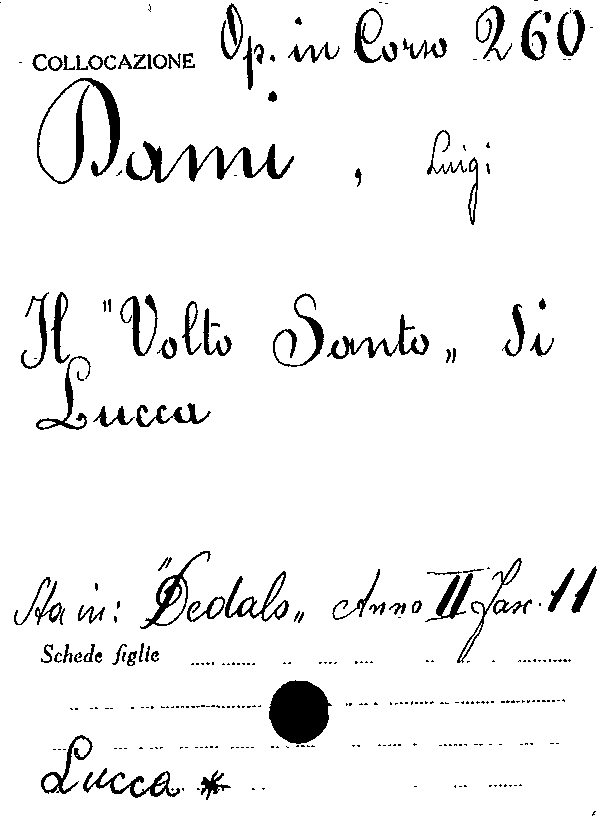 COLLOCAZIONE Op. in Corso 260
Dami, Luigi
Il "Volto Santo„ di
Lucca
Sta in: "Dedalo„ Anno II Fasc. 11
Schede figlie
Lucca *